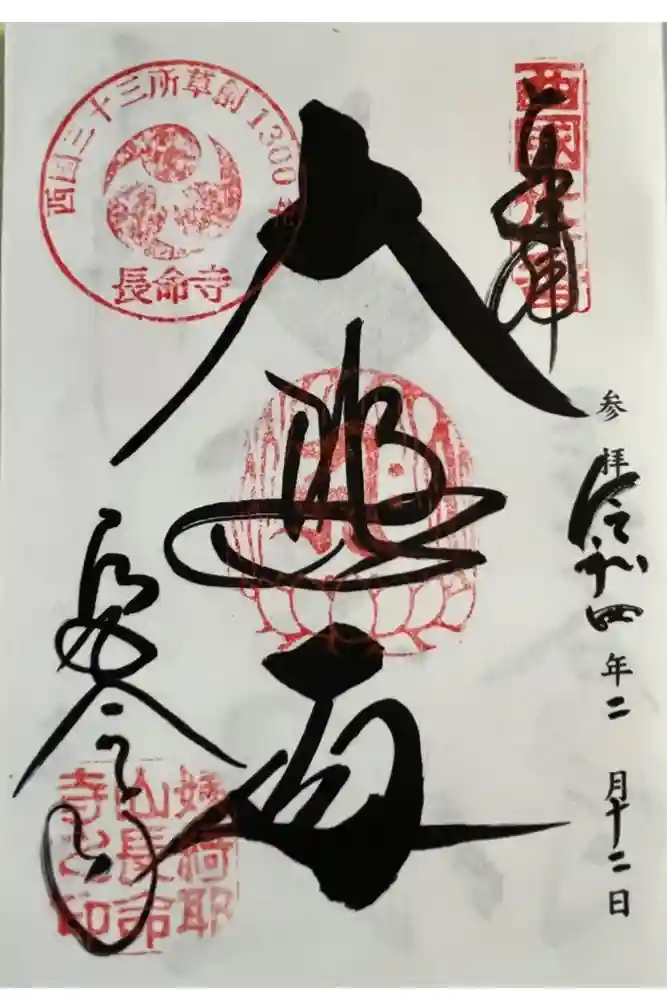 奉拝
西國卅一番
参拝 令和四年二月十二日
大悲殿
西国三十三所草創1300年
長命寺
長命寺
姨綺耶
山長命
寺之印